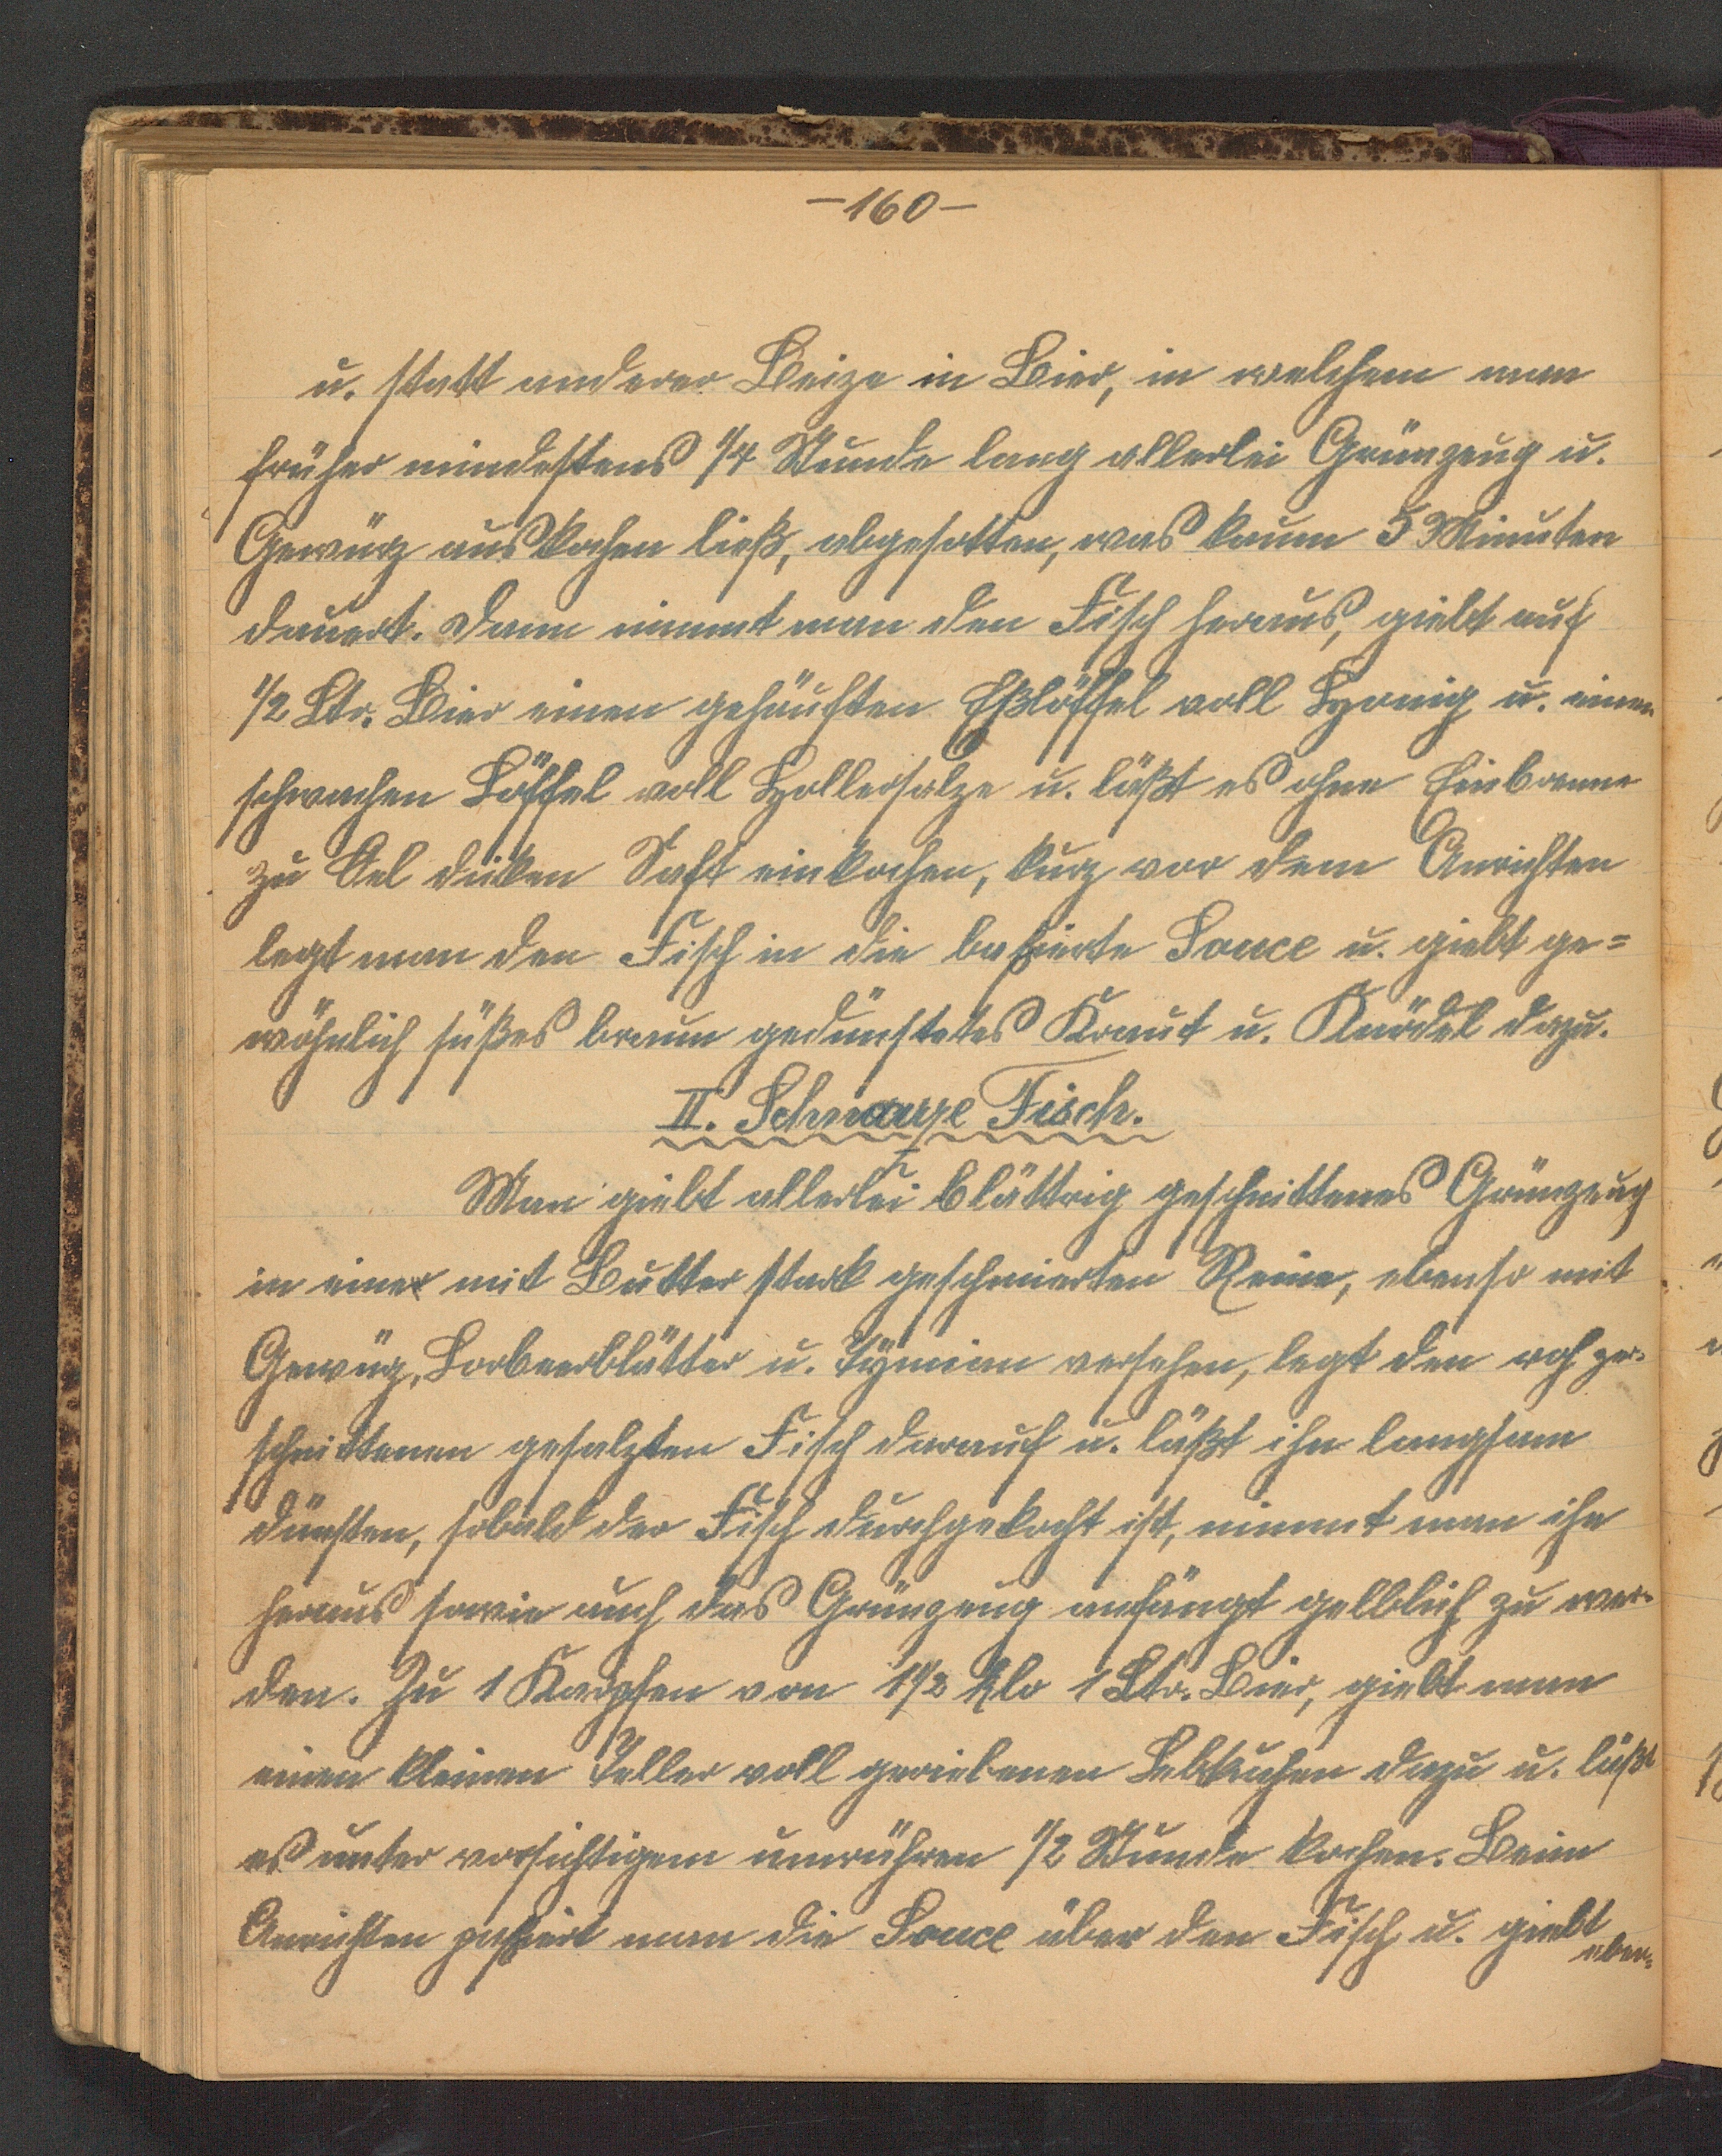 —160—
u. statt anderer Beize in Bier, in welchem man
früher mindestens 1/4 Stunde lang allerlei Grünzeug u.
Gewürz auskochen ließ, abgesotten, was kaum 5 Minuten
dauert. Dann nimmt man den Fisch heraus, giebt auf
1/2 Ltr. Bier einen gehäuften Eßlöffel voll Honig u. einen
schwachen Löffel voll Hollersalze u. läßt es ohne Einbrenne
zu Oel dicken Saft einkochen, kurz vor dem Anrichten
legt man den Fisch in die passierte Souce u. giebt ge=
wöhnlich süßes braun gedünstetes Kraut u. Knödel dazu.
II. Schwarze Fisch.
Man giebt allerlei blättrig geschnittenes Grünzeug
in einer mit Butter stark geschmierten Reine, ebenso mit
Gewürz, Lorbeerblätter u. Tymian versehen, legt den roh zer-
schnittenen gesalzten Fisch darauf u. läßt ihn langsam
dünsten, sobald der Fisch durchgekocht ist, nimmt man ihn
heraus sowie auch das Grünzeug anfängt gelblich zu wer-
den. Zu 1 Karpfen von 1 1/2 Klo 1 Ltr. Bier, giebt man
einen kleinen Teller voll geriebenen Lebkuchen dazu u. läßt
es unter vorsichtigem umrühren 1/2 Stunde kochen. Beim
Anrichten passiert man die Souce über den Fisch u. giebt
eben-